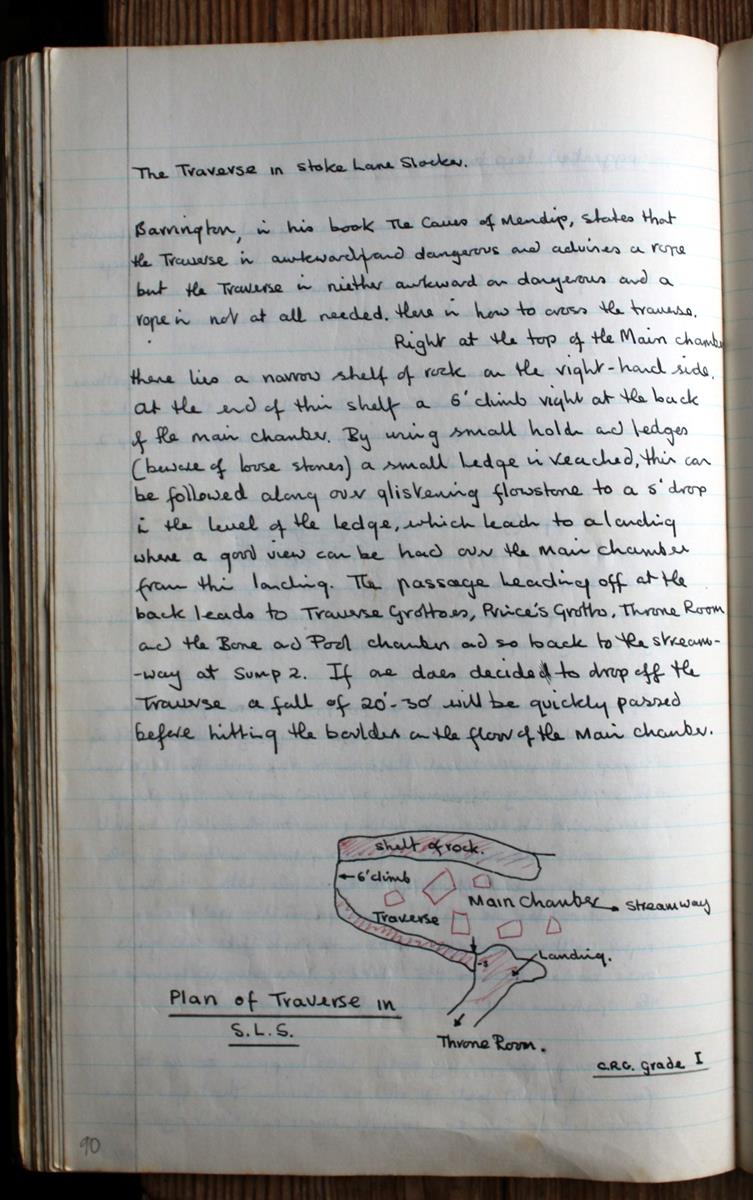 The Traverse in Stoke Lane Slocker.
Barrington, in his book The Caves of Mendip, states that
the Traverse is awkward and dangerous and advises a rope
but the Traverse is niether awkward or dangerous and a
rope is not at all needed. Here is how to cross the traverse.
Right at the top of the Main chamber
there lies a narrow shelf of rock on the right-hand side.
At the end of this shelf a 6' climb right at the back
of the main chamber. By using small holds and ledges
(beware of loose stones) a small ledge is reached, this can
be followed along over gliskening flowstone to a 5' drop
in the level of the ledge, which leads to a landing
where a good view can be had over the Main chamber
from this landing. The passage heading off at the
back leads to Traverse Grottoes, Prince's Grotto, Throne Room
and the Bone and Pool chamber and so back to the stream-
-way at Sump 2. If one does decided to drop off the
Traverse a fall of 20'-30' will be quickly passed
before hitting the boulders on the floor of the Main chamber.
Shelf of rock.
6' climb
Main Chamber
Streamway
Traverse
-5
Landing.
Plan of Traverse in
S.L.S.
Throne Room.
C.R.G. grade I
90